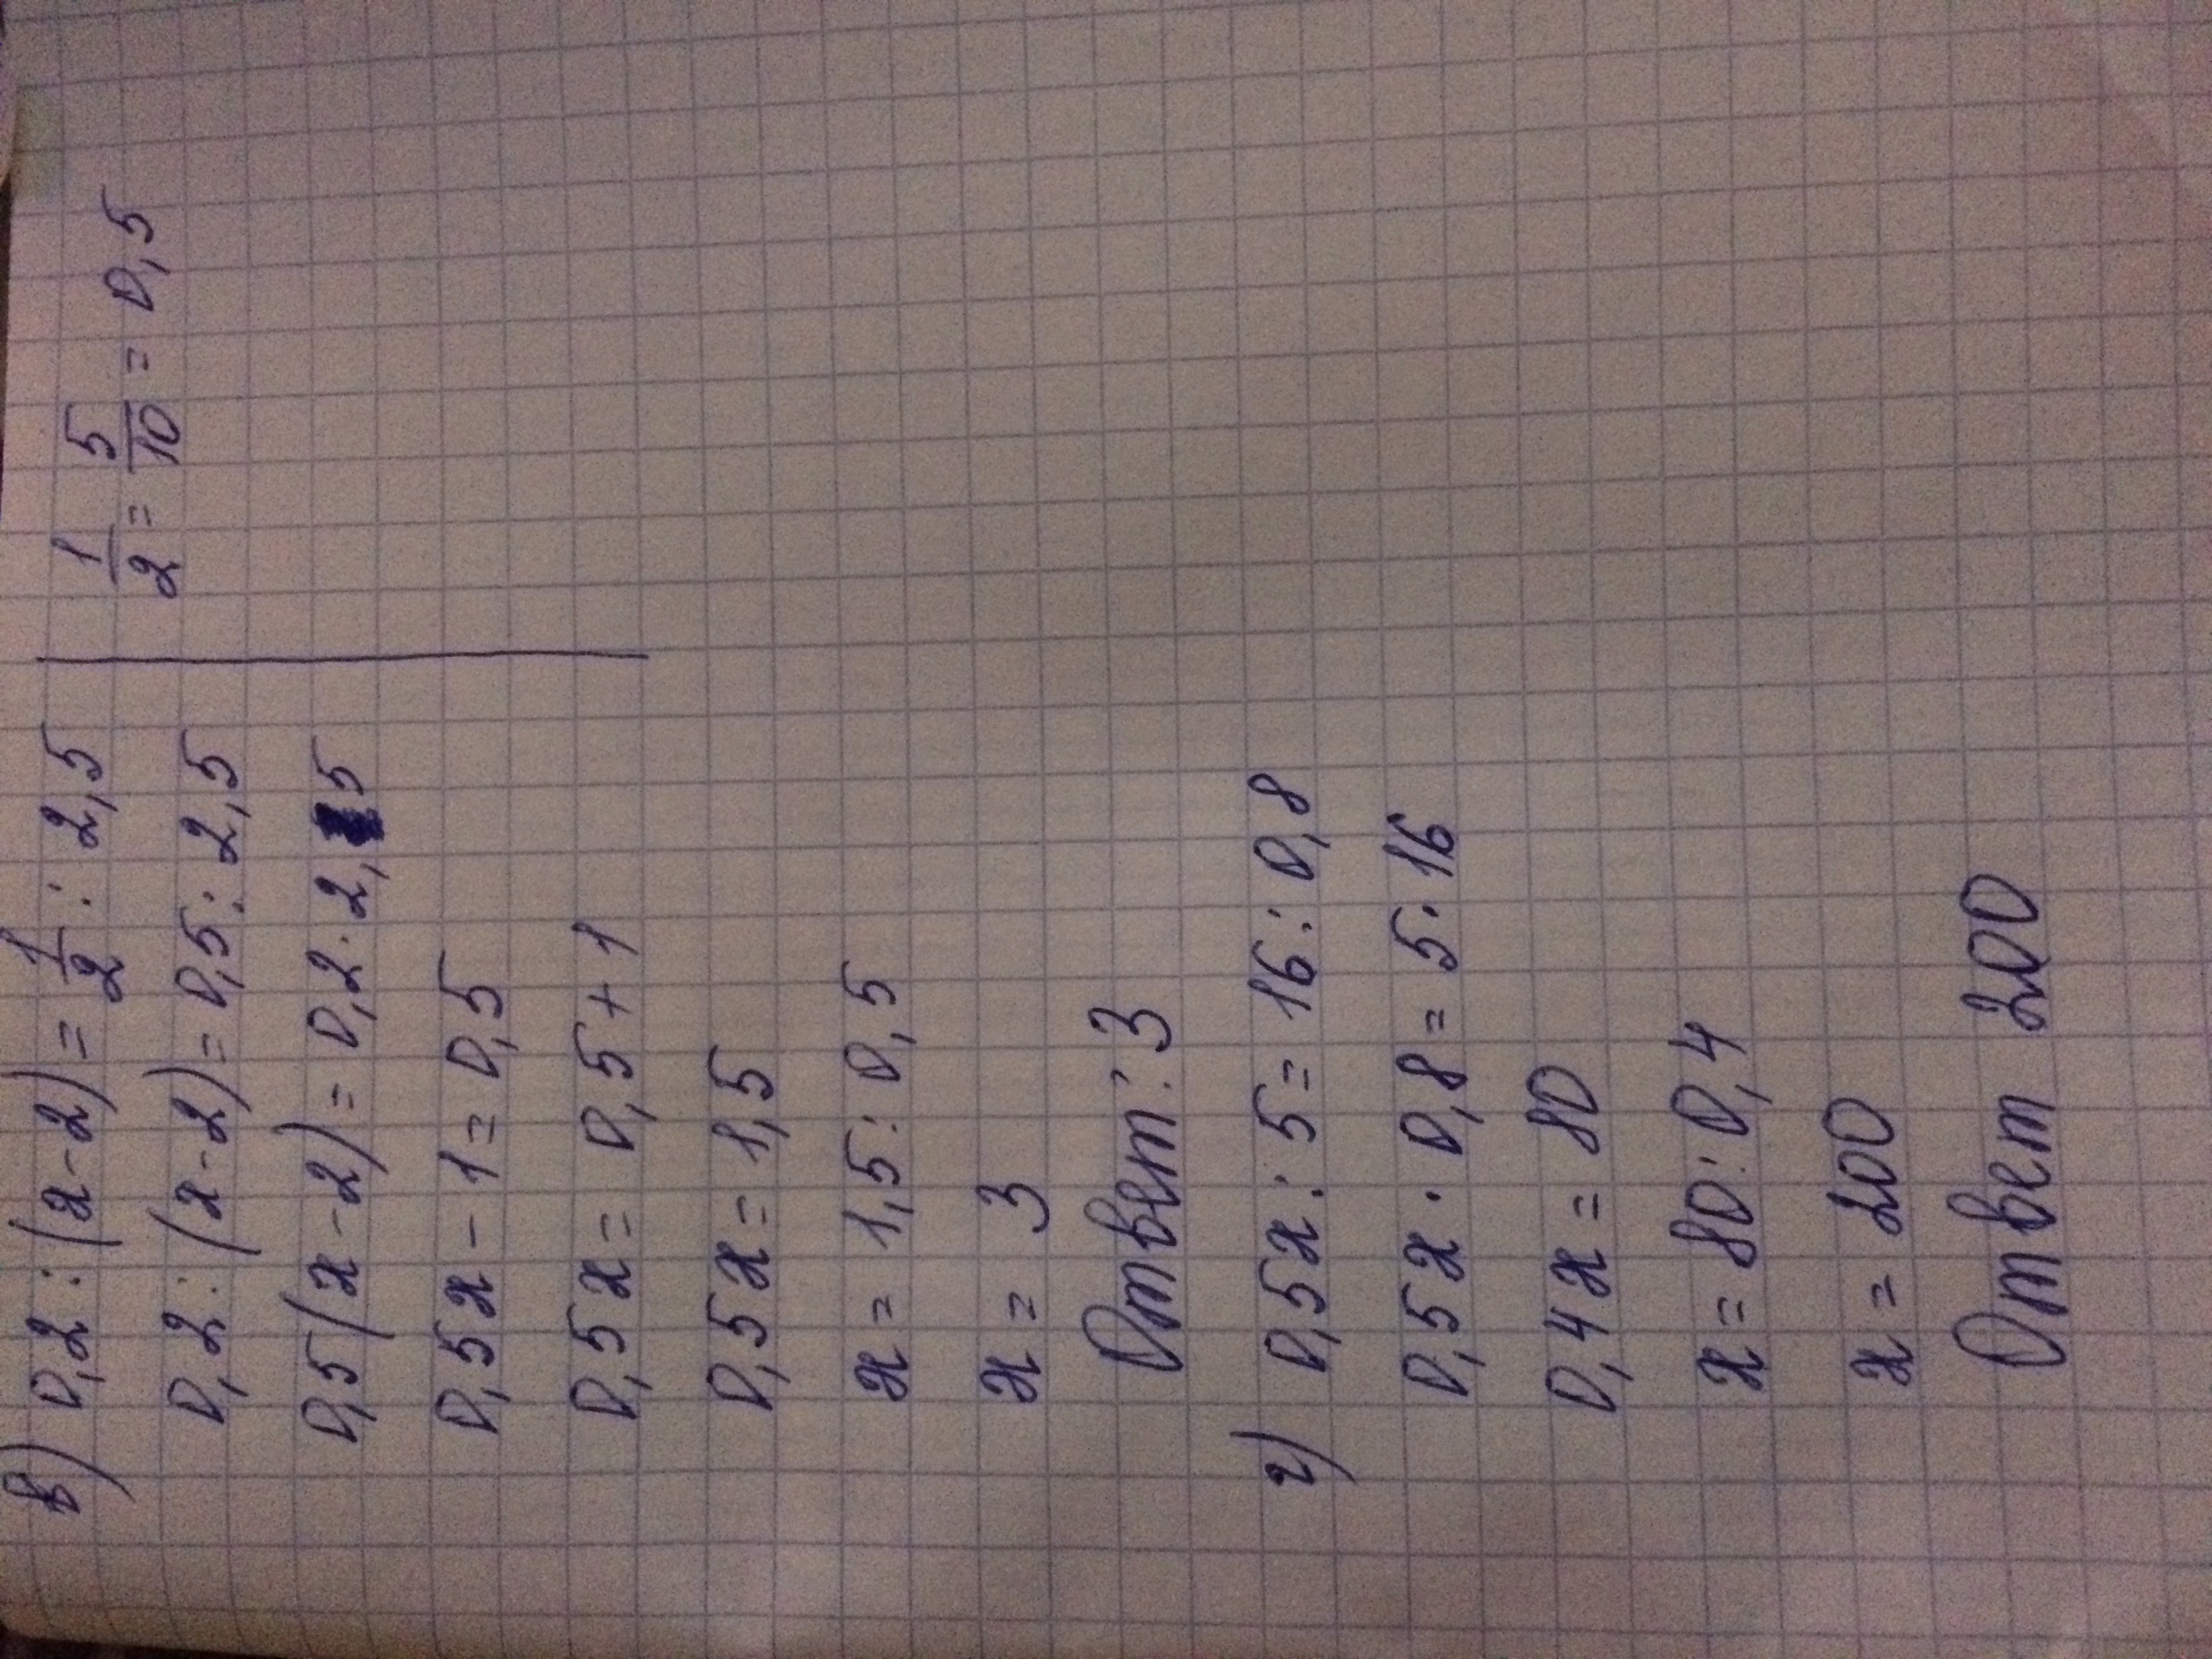 в) 0,2 : (x-2) = 1/2 : 2,5
0,2 : (x-2) = 0,5 : 2,5
0,5(x-2) = 0,2 · 2,5
0,5x - 1 = 0,5
0,5x = 0,5 + 1
0,5x = 1,5
x = 1,5 : 0,5
x = 3
Ответ: 3
1/2 = 5/10 = 0,5
г) 0,5x : 5 = 16 : 0,8
0,5x · 0,8 = 5 · 16
0,4x = 80
x = 80 : 0,4
x = 200
Ответ 200